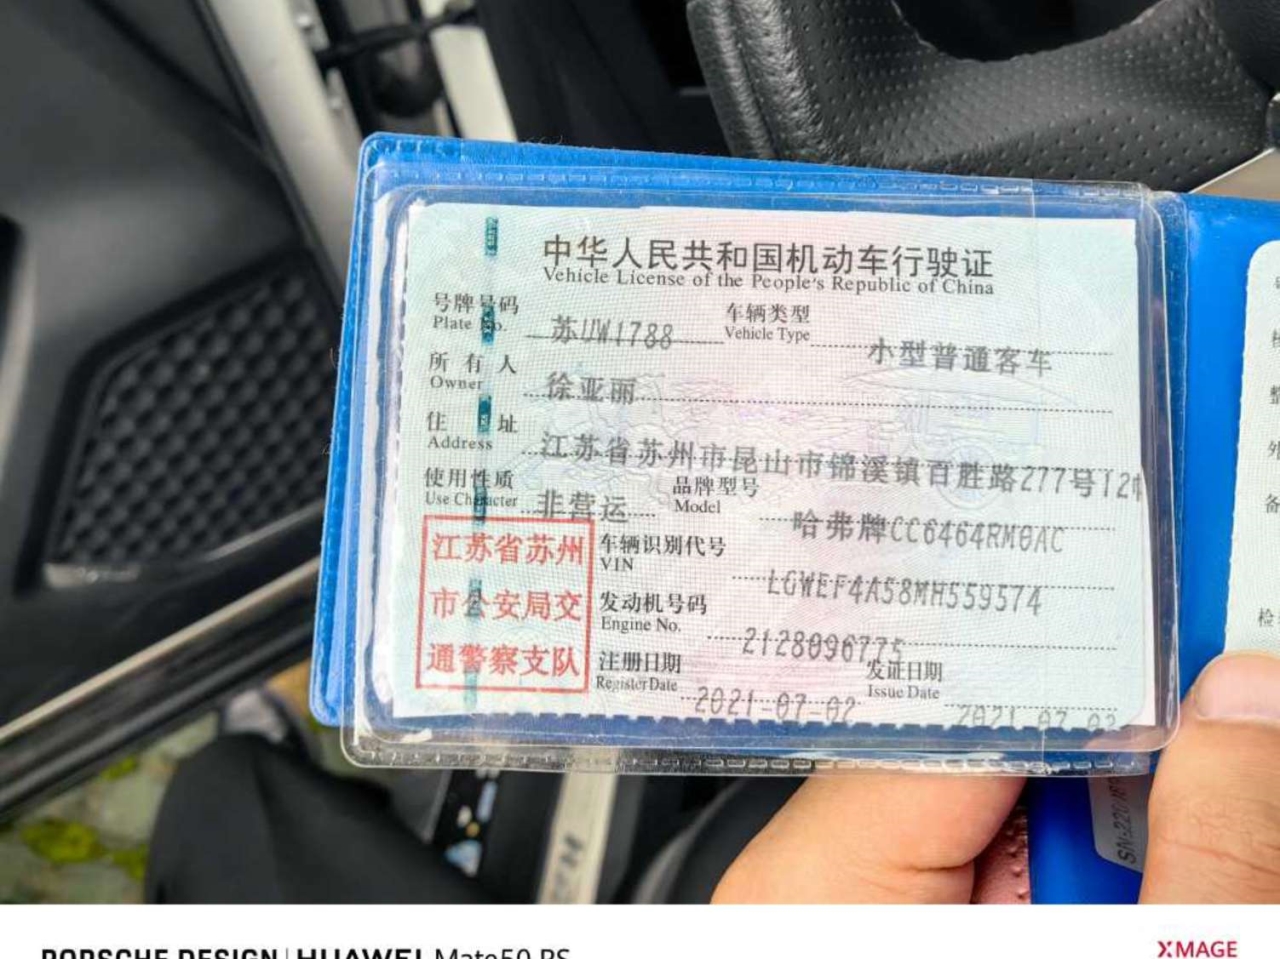 中华人民共和国机动车行驶证
Vehicle License of the People's Republic of China
号牌号码 苏UW1788 车辆类型 小型普通客车
Plate No. Vehicle Type
所有人 徐亚丽
Owner
住址 江苏省苏州市昆山市锦溪镇百胜路277号12
Address
使用性质 非营运 品牌型号 哈弗牌CC6464RM0AC
Use Character Model
江苏省苏州
市公安局交
通警察支队
车辆识别代号 LGWEF4A58MH559574
VIN
发动机号码 2128096775
Engine No.
注册日期 2021-07-02 发证日期 2021-07-02
Register Date Issue Date
PORSCHE DESIGN | HUAWEI Mate50 RS
XMAGE